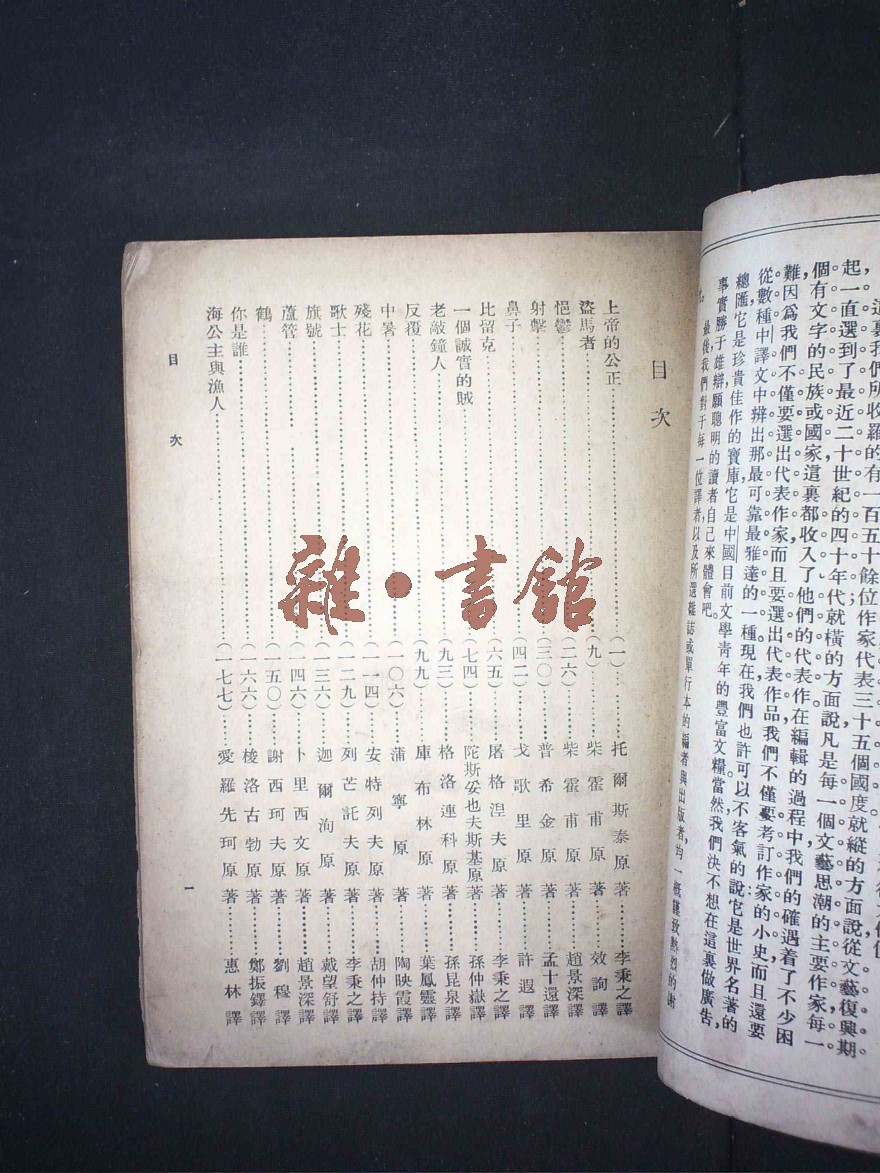 這裏我們所收羅的有一百五十餘位作家代表三十五個國度就縱的方面說從文藝復興期
起一直選到了最近二十世紀的四十年代；就橫的方面說凡是每一個文藝思潮的主要作家每一
個有文字的民族或國家這裏都收入了他們的代表作。在編輯的過程中我們的確遇着了不少困
難，因爲我們不僅要選出代表作家而且要選出代表作品我們不僅要考訂作家的小史而且還要
從數種中譯文中辨出那最可靠最雅達的一種。現在我們也許可以不客氣的說它是世界名著的
總匯，它是珍貴佳作的寶庫它是中國目前文學青年的豐富文糧當然我們決不想在這裏做廣告，
事實勝于雄辯願聰明的讀者自己來體會吧。
最後，我們對于每一位譯者，以及所選雜誌或單行本的編者與出版者，均一概謹致熱烈的謝
目次
上帝的公正……（一）……托爾斯泰原著……李秉之譯
盜馬者……（九）……柴霍甫原著……效詢譯
悒鬱……（二六）……柴霍甫原著……趙景深譯
射擊……（三〇）……普希金原著……孟十還譯
鼻子……（四二）……戈歌里原著……許遐譯
比留克……（六五）……屠格涅夫原著……李秉之譯
一個誠實的賊……（七四）……陀斯妥也夫斯基原著……孫仲嶽譯
老敲鐘人……（九三）……格洛連科原著……孫昆泉譯
反覆……（九九）……庫布林原著……葉鳳靈譯
中暑……（一〇六）……蒲寧原著……陶映霞譯
殘花……（一一四）……安特列夫原著……胡仲持譯
歌士……（一二九）……列芒託夫原著……李秉之譯
旗號……（一三六）……迦爾洵原著……戴望舒譯
蘆管……（一四六）……卜里西文原著……趙景深譯
鶴……（一五〇）……謝西珂夫原著……劉穆譯
你是誰……（一六六）……梭洛古勃原著……鄭振鐸譯
海公主與漁人……（一七七）……愛羅先珂原著……惠林譯
目次
一
雜·書館